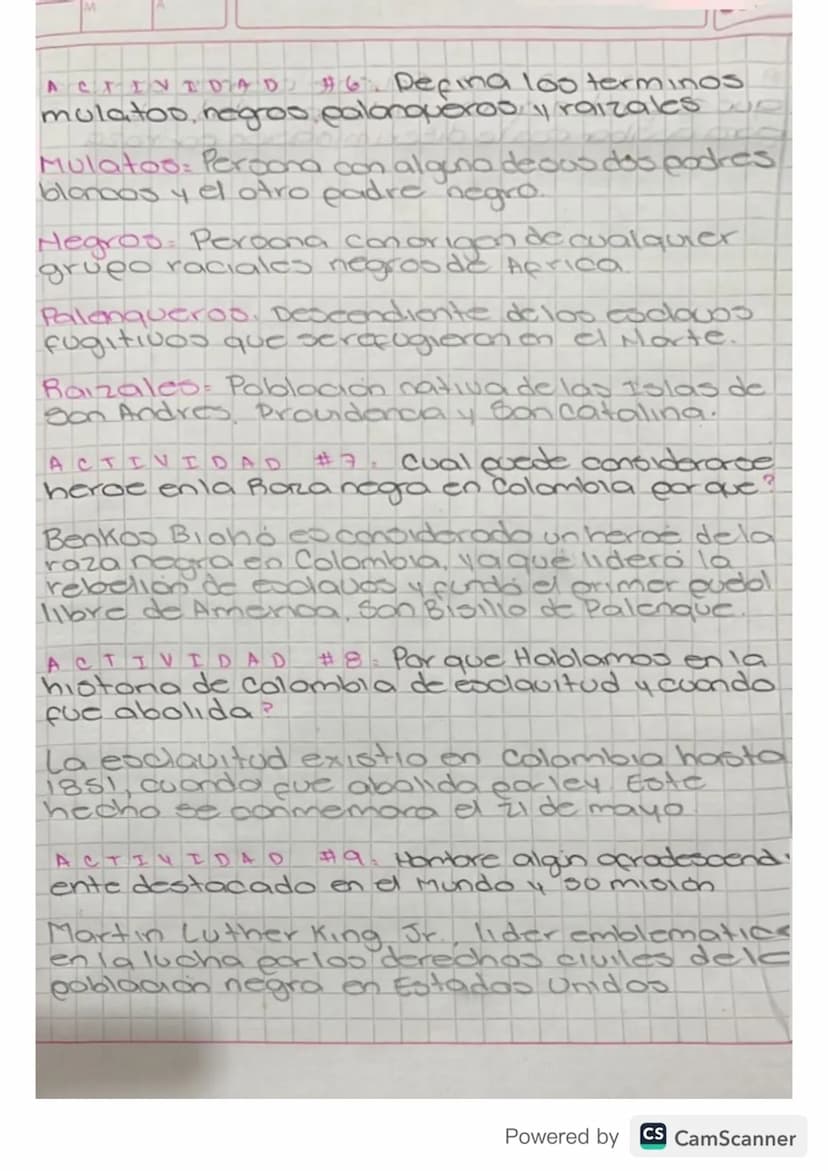 M A
ACTIVIDAD #6. Defina los terminos
mulatos, negros, palanqueros, y raizales
Mulatos: Persona con alguno de sus dos padres
blancos y el otro padre negro.
Negros: Persona con origen de cualquier
grupo raciales negros de Africa
Palenqueros. Descendiente de los esclavos
fugitivos que se refugieron en el Norte.
Raizales: Población nativa de las Islas de
San Andres, Providencia y San Catalina.
ACTIVIDAD #7. Cual puede considerarse
heroe en la Raza negra en Colombia por que?
Benkos Biohó es considerado un heroe de la
raza negra en Colombia, ya que lideró la
rebelión de esclavos y fundó el primer puebl
libre de America, San Bisilio de Palenque.
ACTIVIDAD #8. Por que Hablamos en la
historia de Colombia de esclavitud y cuando
fue abolida?
La esclavitud existio en Colombia hasta
1851, cuando fue abolida por ley Este
hecho se conmemora el 21 de mayo
ACTIVIDAD #9. Nombre algin afradescend
ente destacado en el Mundo y so misión
Martin Luther King Jr., lider emblematico
en la lucha por los derechos civiles de la
población negra en Estados Unidos
Powered by CS CamScanner